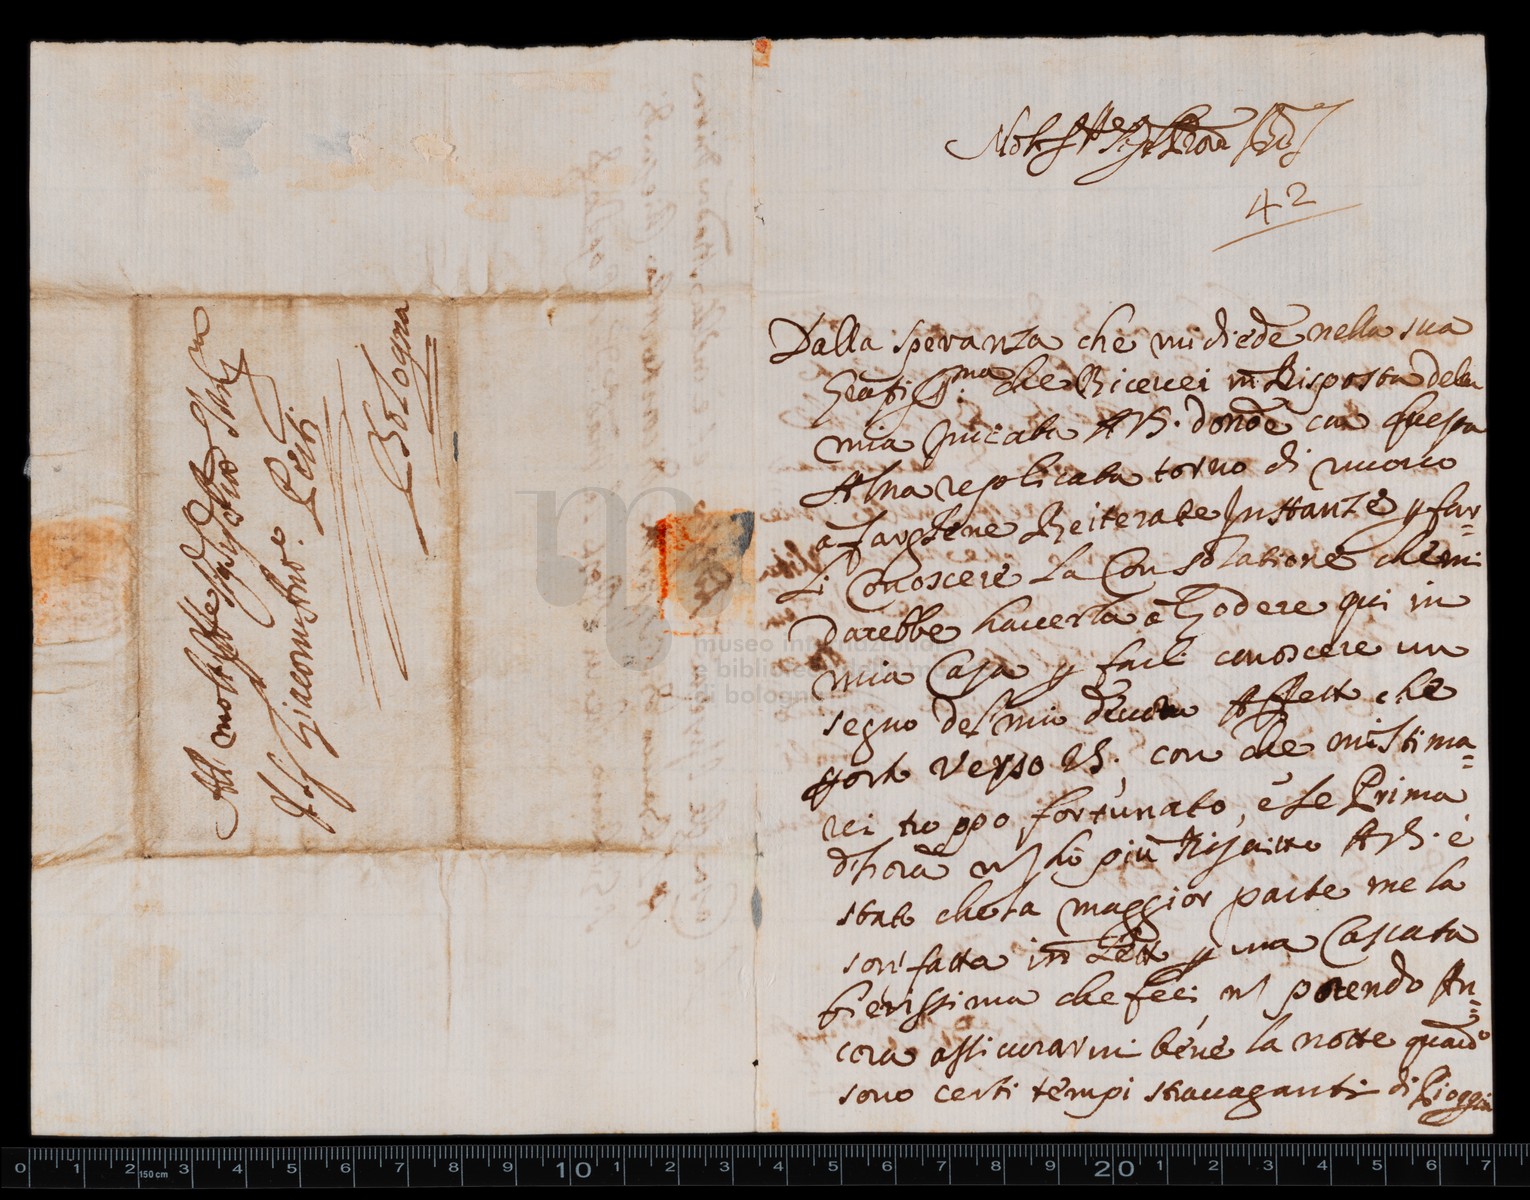 Al molt Ill.re Sig.r
Sig.r Giacomo Ant.o Perti
Bologna
Molt Ill.re Sig.r P.rone
42
Dalla speranza che mi diede nella sua
che Ricevei in Risposta dela
mia AVS. donde con questa
Altra replicata torno di nuovo
a fargliene Reiterate Instanze p far=
Li Conoscere La Consolatione che mi
darebbe haverla à Godere qui in
mia Casa p farli conoscere un
segno del mio Affetto che
porto verso VS. con che mi stima=
rei troppo fortunato, e se Prima
d'hora nō hò più AVS. è
stato che la maggior parte me la
son fatta in Letto p una Cascata
fierissima che feci, nō potendo An=
cora assicurarmi bene la notte quando
sono certi tempi stravaganti di Pioggia
museo internazionale
e biblioteca della musica
di bologna
0 1 2 3 4 5 6 7 8 9 10 1 2 3 4 5 6 7 8 9 20 1 2 3 4 5 6 7
150 cm